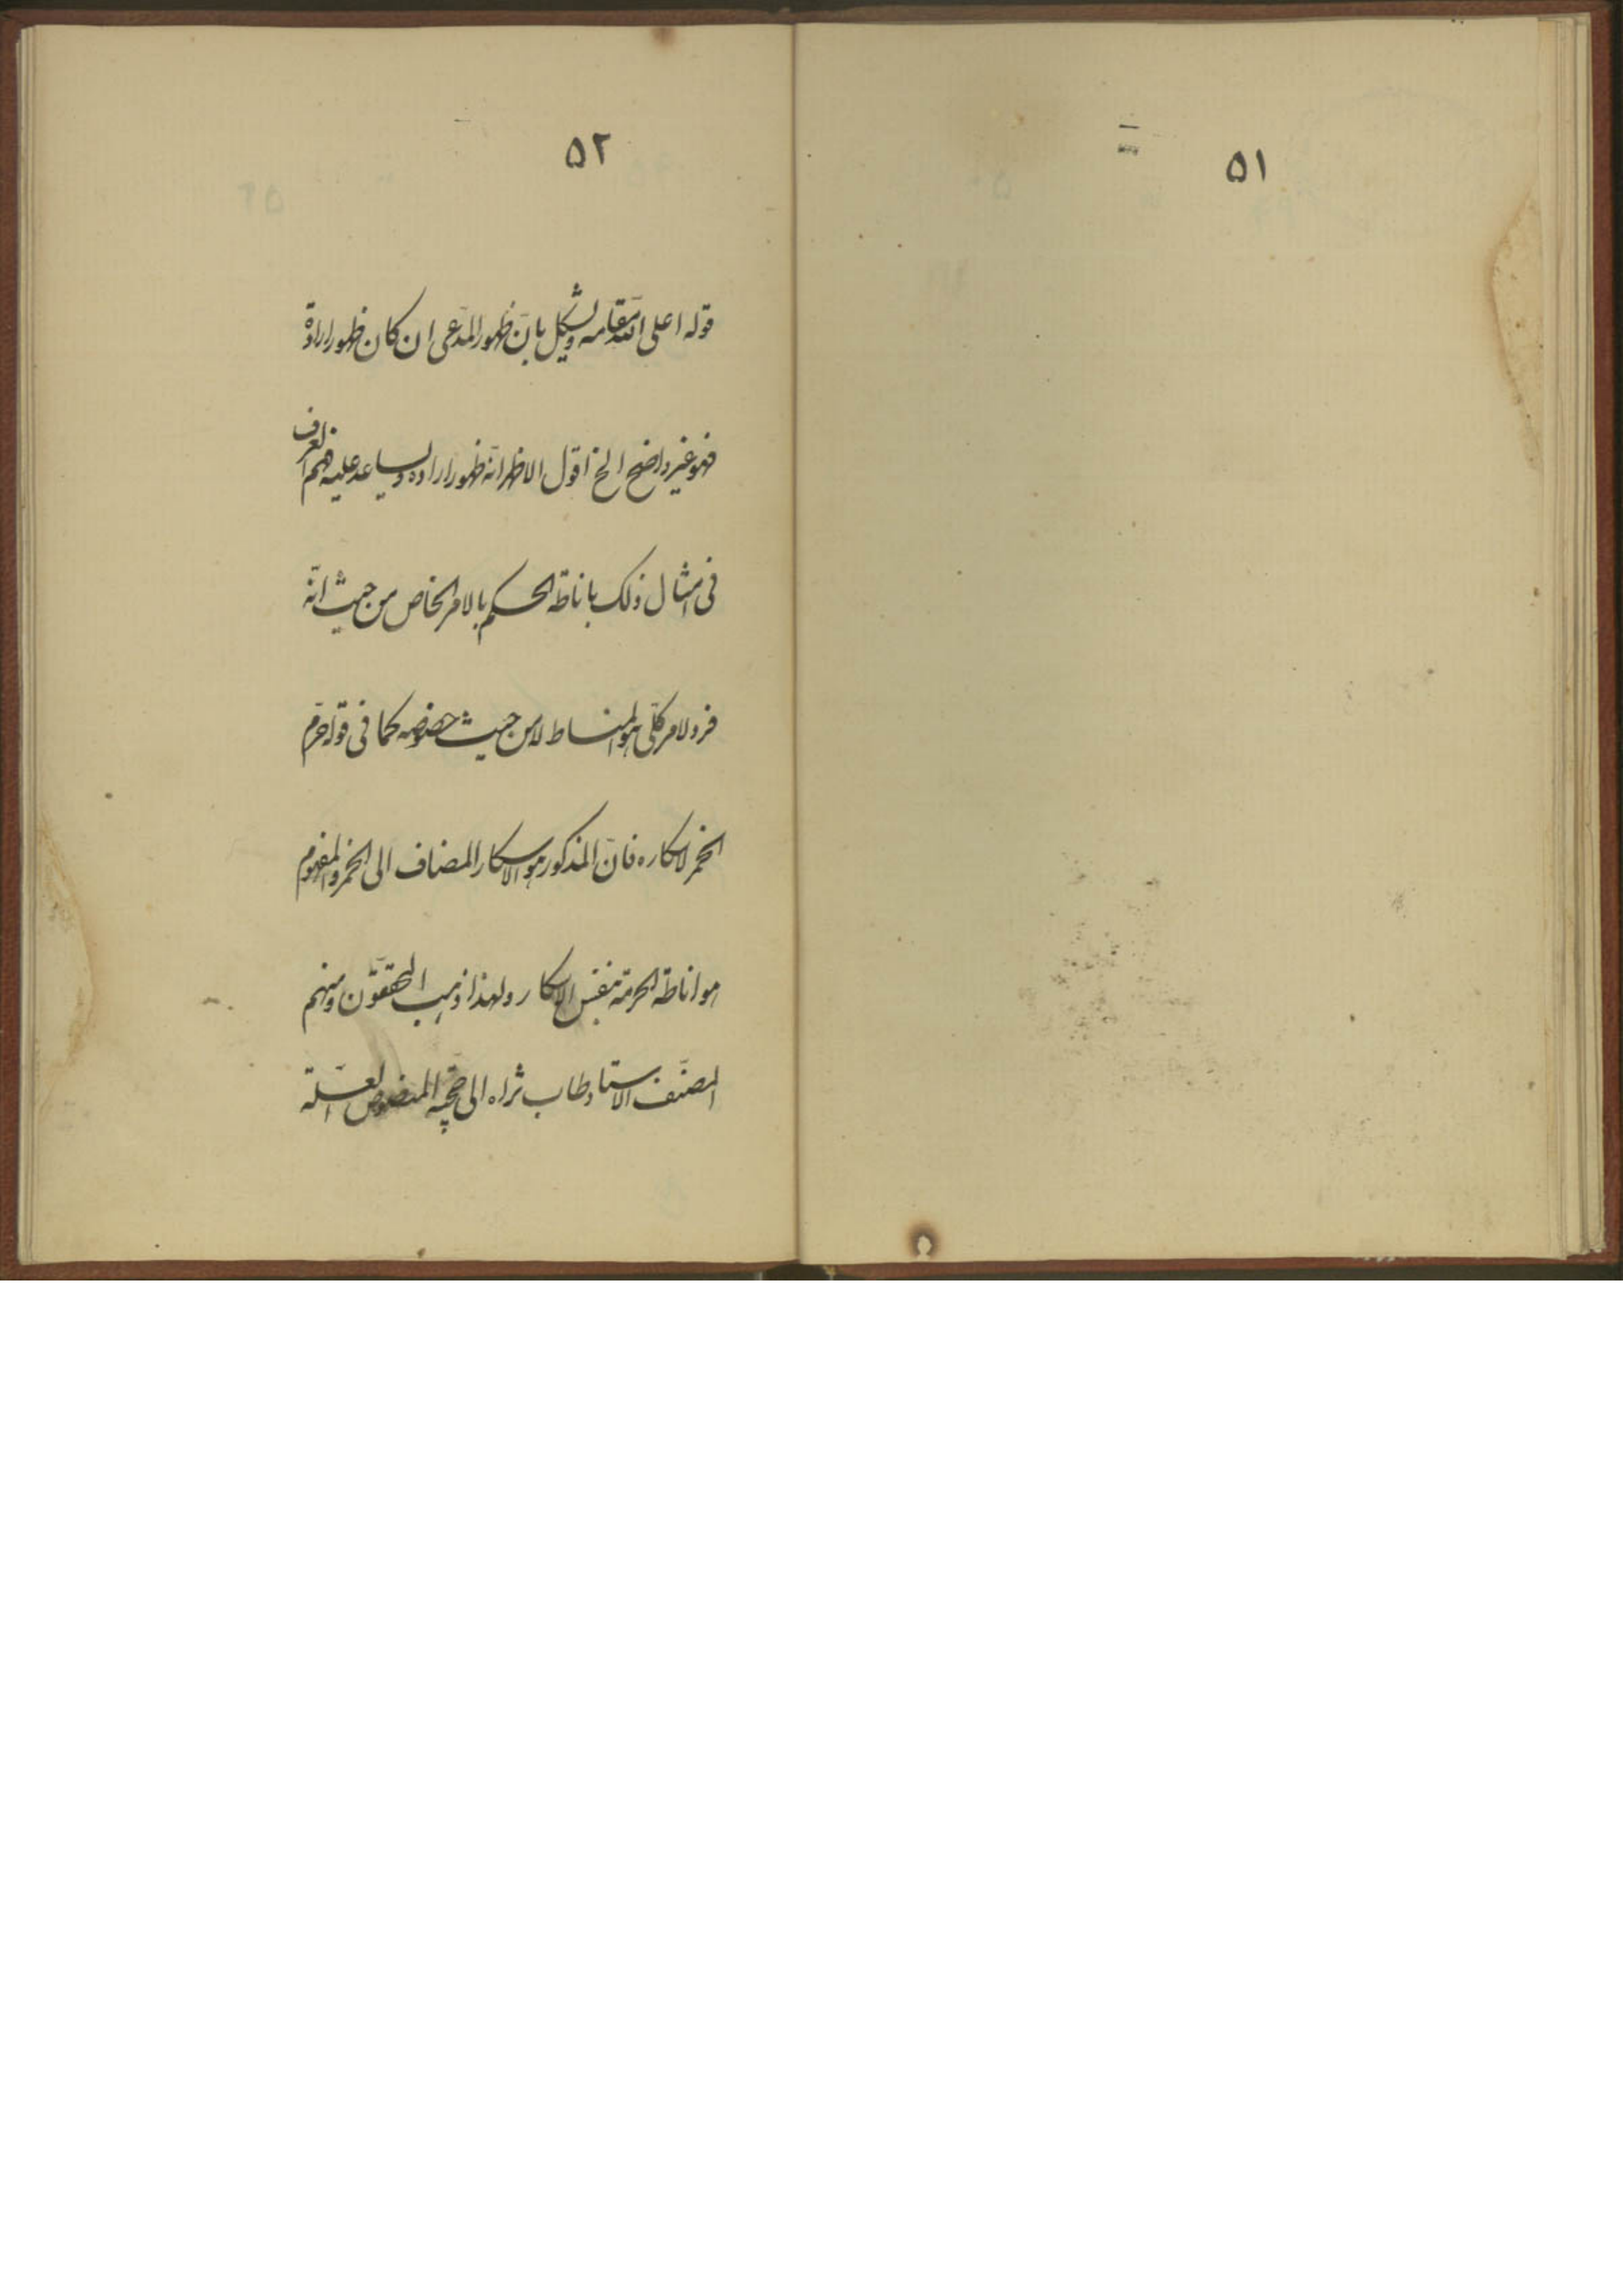 ٥١
٥٢
قوله اعلى الله مقامه ويشكل بانّ ظهور المدّعى ان كان ظهور ارادة
فهو غير واضح الخ اقول الاظهر انّه ظهور اراده ويساعد عليه فهم العرف
فى امثال ذلك باناطة الحكم بالامر الخاص من حيث انّه
فرد لامر كلّى هو المناط لا من حيث خصوصه كما فى قوله حرّم
الخمر لاسكاره فانّ المذكور هو الاسكار المضاف الى الخمر والمفهوم
هو اناطة الحرمة بنفس الاسكار ولهذا ذهب المحققون ومنهم
المصنّف الاستاد طاب ثراه الى حجّية المنصوص العلّة